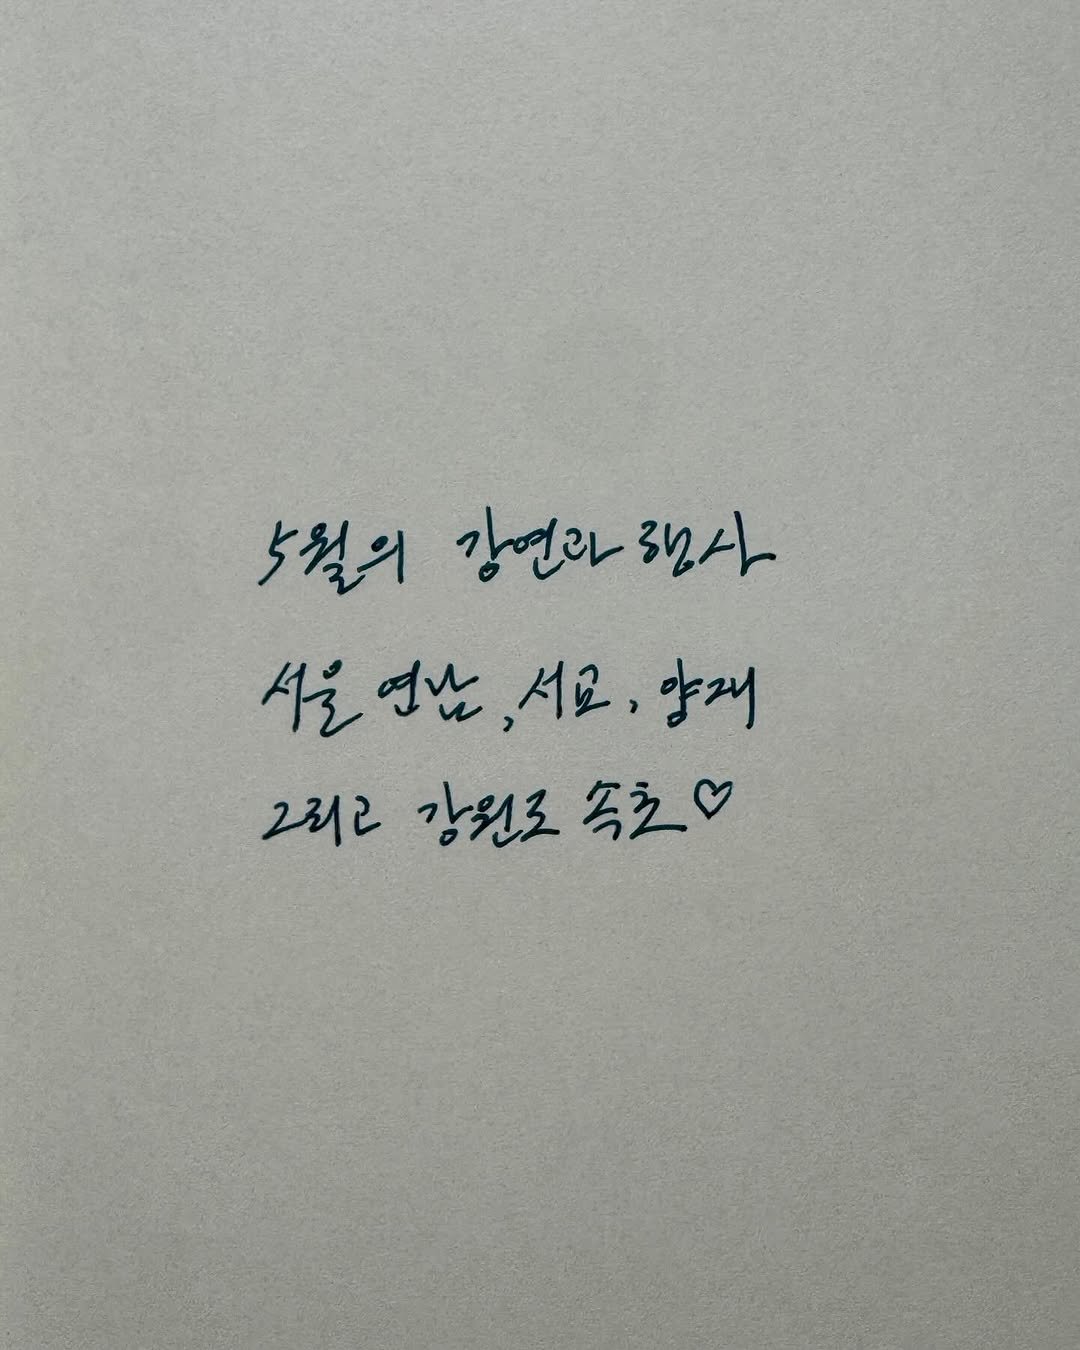 5월의 강연과 행사
서울 연남, 서교, 양재
그리고 강원도 속초♡